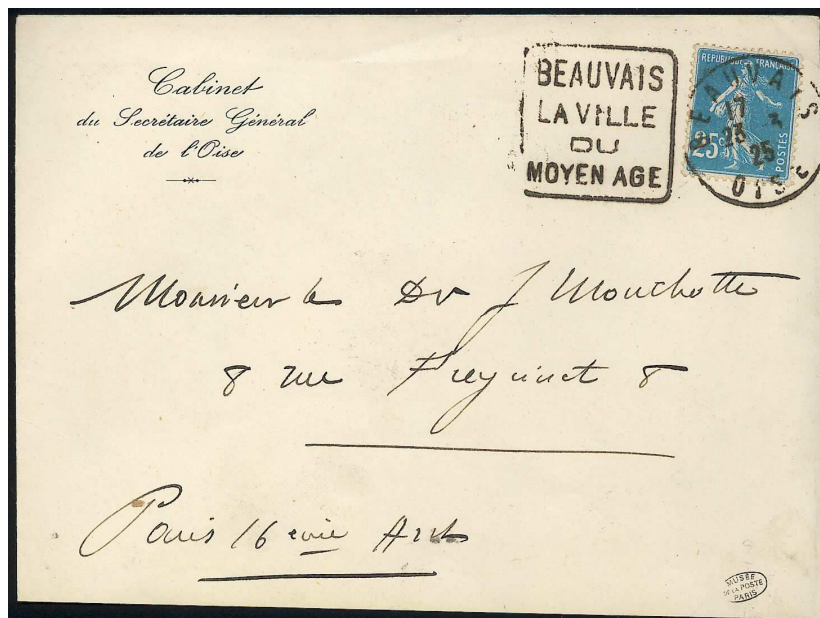 Cabinet
du Secrétaire Général
de l'Oise
BEAUVAIS
LA VILLE
DU
MOYEN AGE
REPUBLIQUE FRANÇAISE
25c
POSTES
BEAUVAIS
17
23 3
25
OISE
Monsieur le Dr J Mouchotte
8 rue Freycinet 8
Paris 16 ème Arrt
MUSÉE
DE LA POSTE
PARIS